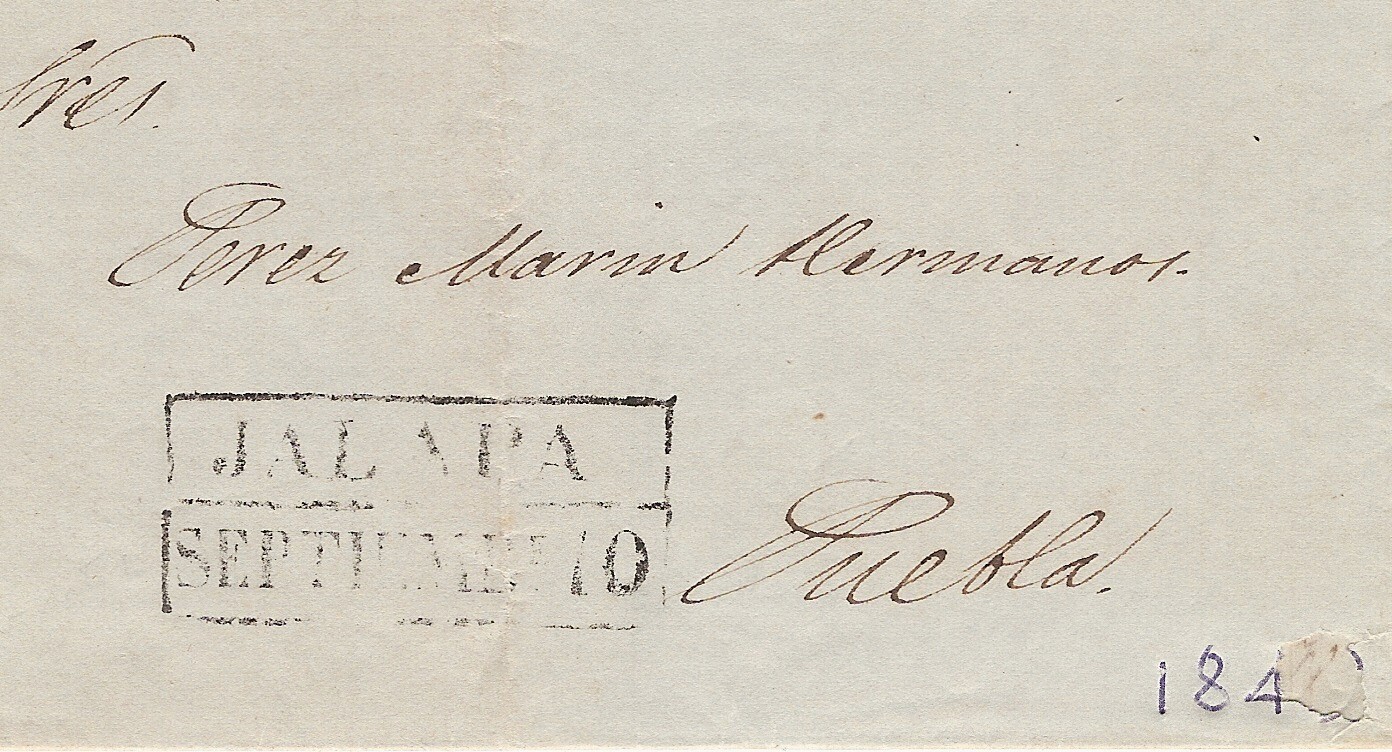 Sres.
Perez Marin Hermanos.
JALAPA
SEPTIEMBE 10
Puebla.
184